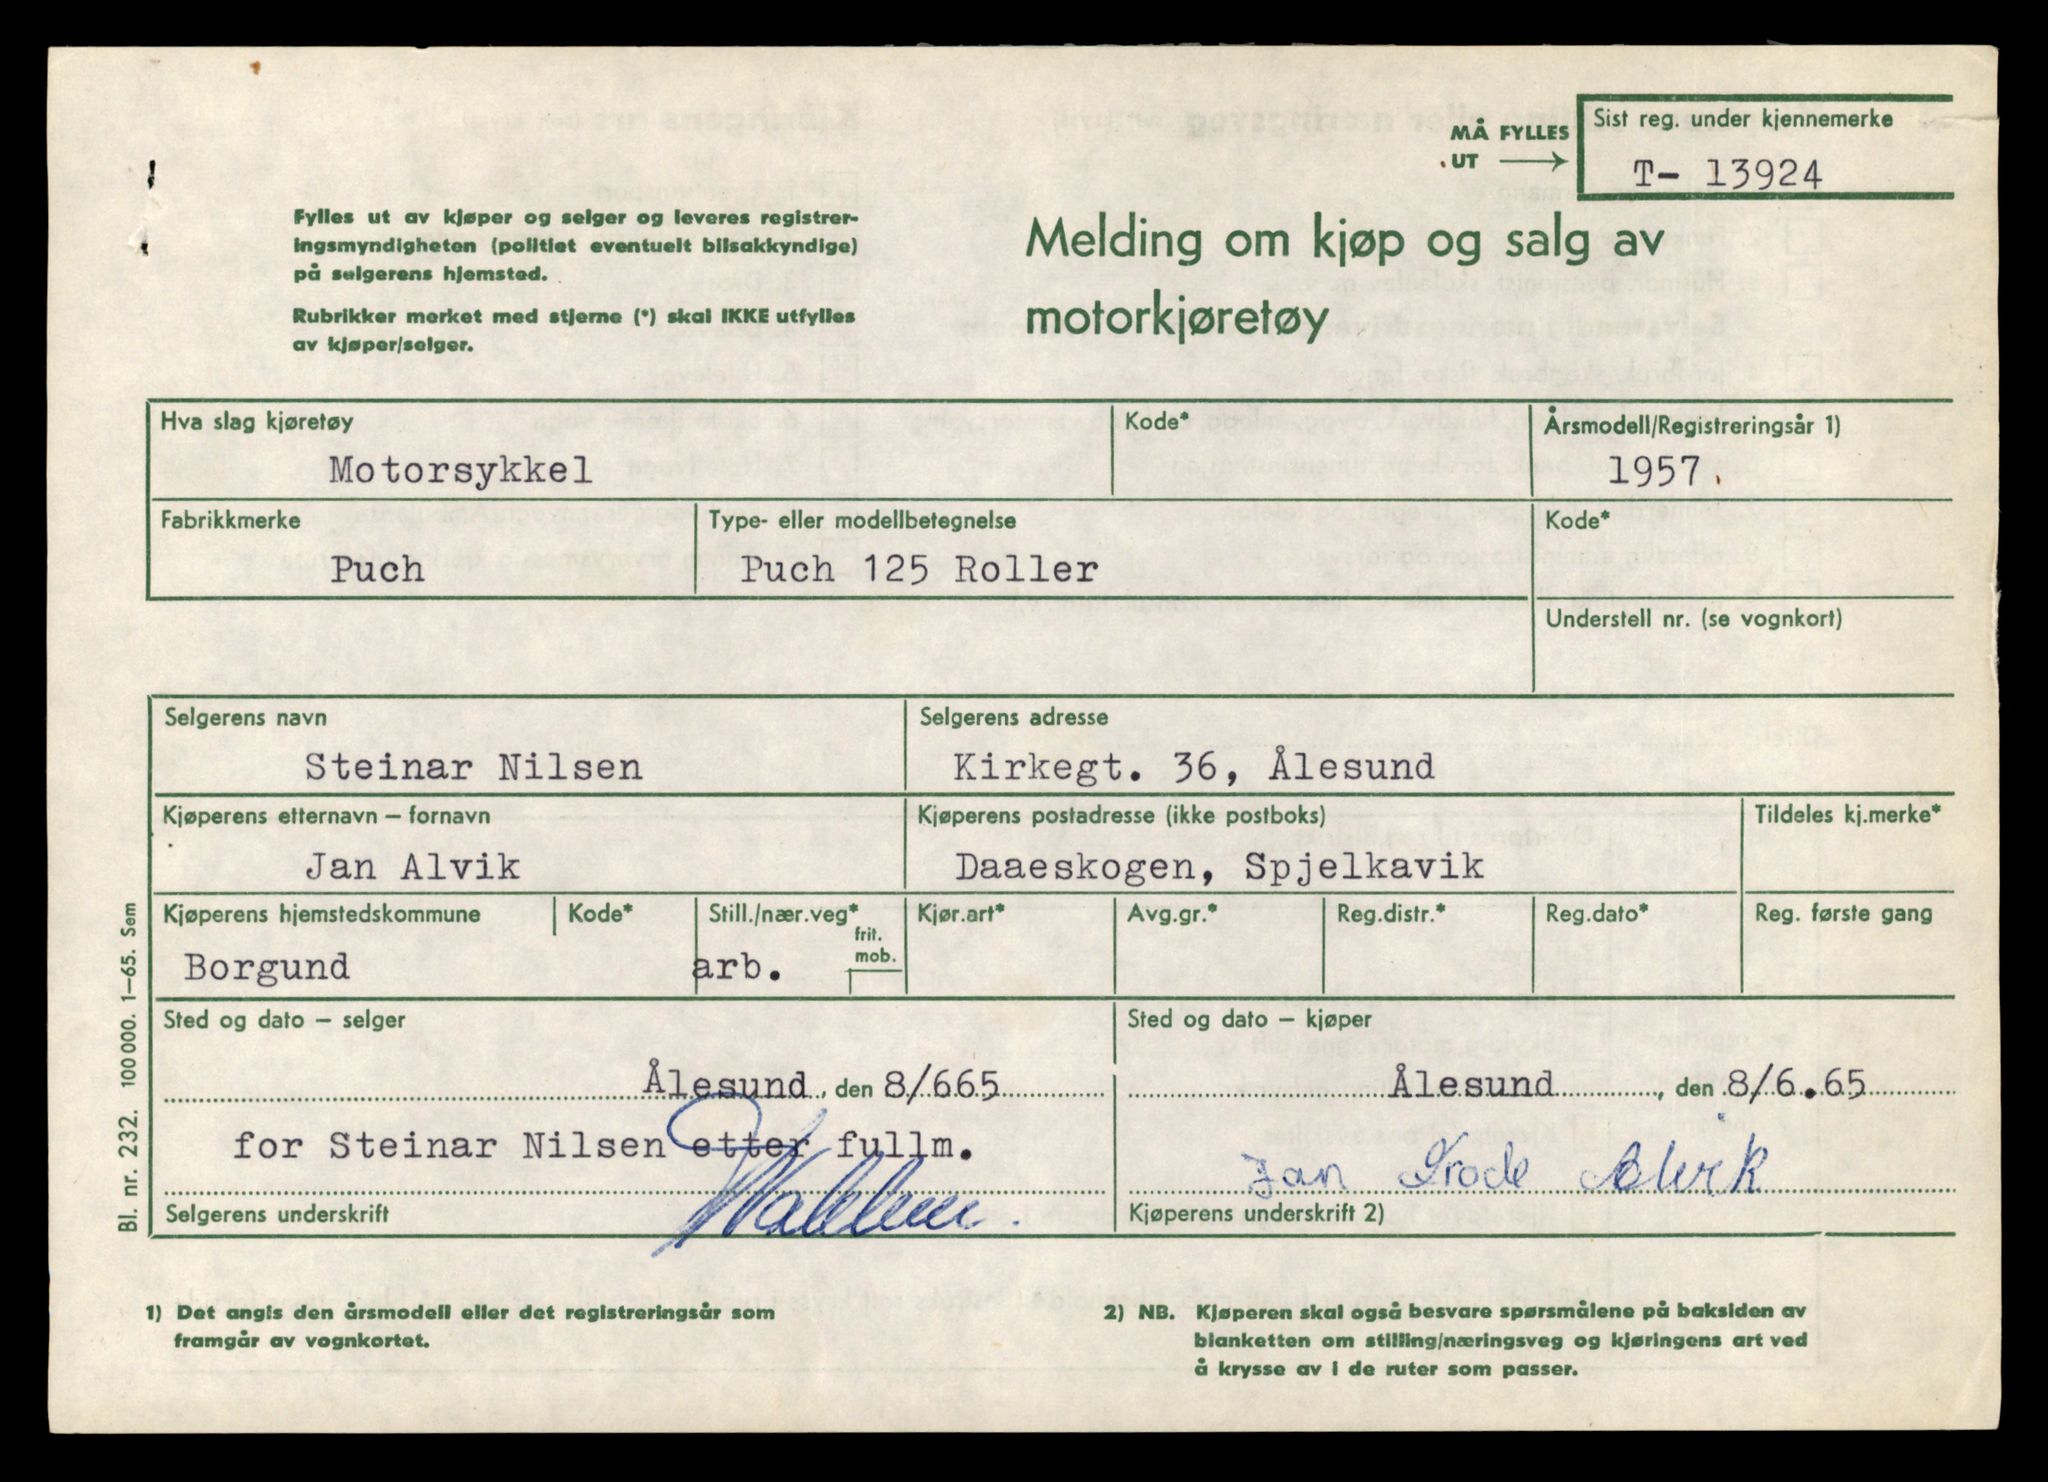 MÅ FYLLES
UT
Sist reg. under kjennemerke
T- 13924
Fylles ut av kjøper og selger og leveres registrer-
ingsmyndigheten (politiet eventuelt bilsakkyndige)
på selgerens hjemsted.
Rubrikker merket med stjerne (*) skal IKKE utfylles
av kjøper/selger.
Melding om kjøp og salg av
motorkjøretøy
Hva slag kjøretøy
Kode*
Årsmodell/Registreringsår 1)
Motorsykkel
1957.
Fabrikkmerke
Type- eller modellbetegnelse
Kode*
Puch
Puch 125 Roller
Understell nr. (se vognkort)
Selgerens navn
Selgerens adresse
Steinar Nilsen
Kirkegt. 36, Ålesund
Kjøperens etternavn – fornavn
Kjøperens postadresse (ikke postboks)
Tildeles kj.merke*
Jan Alvik
Daaeskogen, Spjelkavik
Kjøperens hjemstedskommune
Kode*
Still./nær.veg*
frit.
mob.
Kjør.art*
Avg.gr.*
Reg.distr.*
Reg.dato*
Reg. første gang
Borgund
arb.
Sted og dato – selger
Sted og dato – kjøper
Ålesund, den 8/665
Ålesund, den 8/6.65
for Steinar Nilsen etter fullm.
Jan Frode Alvik
Selgerens underskrift
Kjøperens underskrift 2)
Bl. nr. 232. 100 000. 1–65. Sem
1) Det angis den årsmodell eller det registreringsår som
framgår av vognkortet.
2) NB. Kjøperen skal også besvare spørsmålene på baksiden av
blanketten om stilling/næringsveg og kjøringens art ved
å krysse av i de ruter som passer.